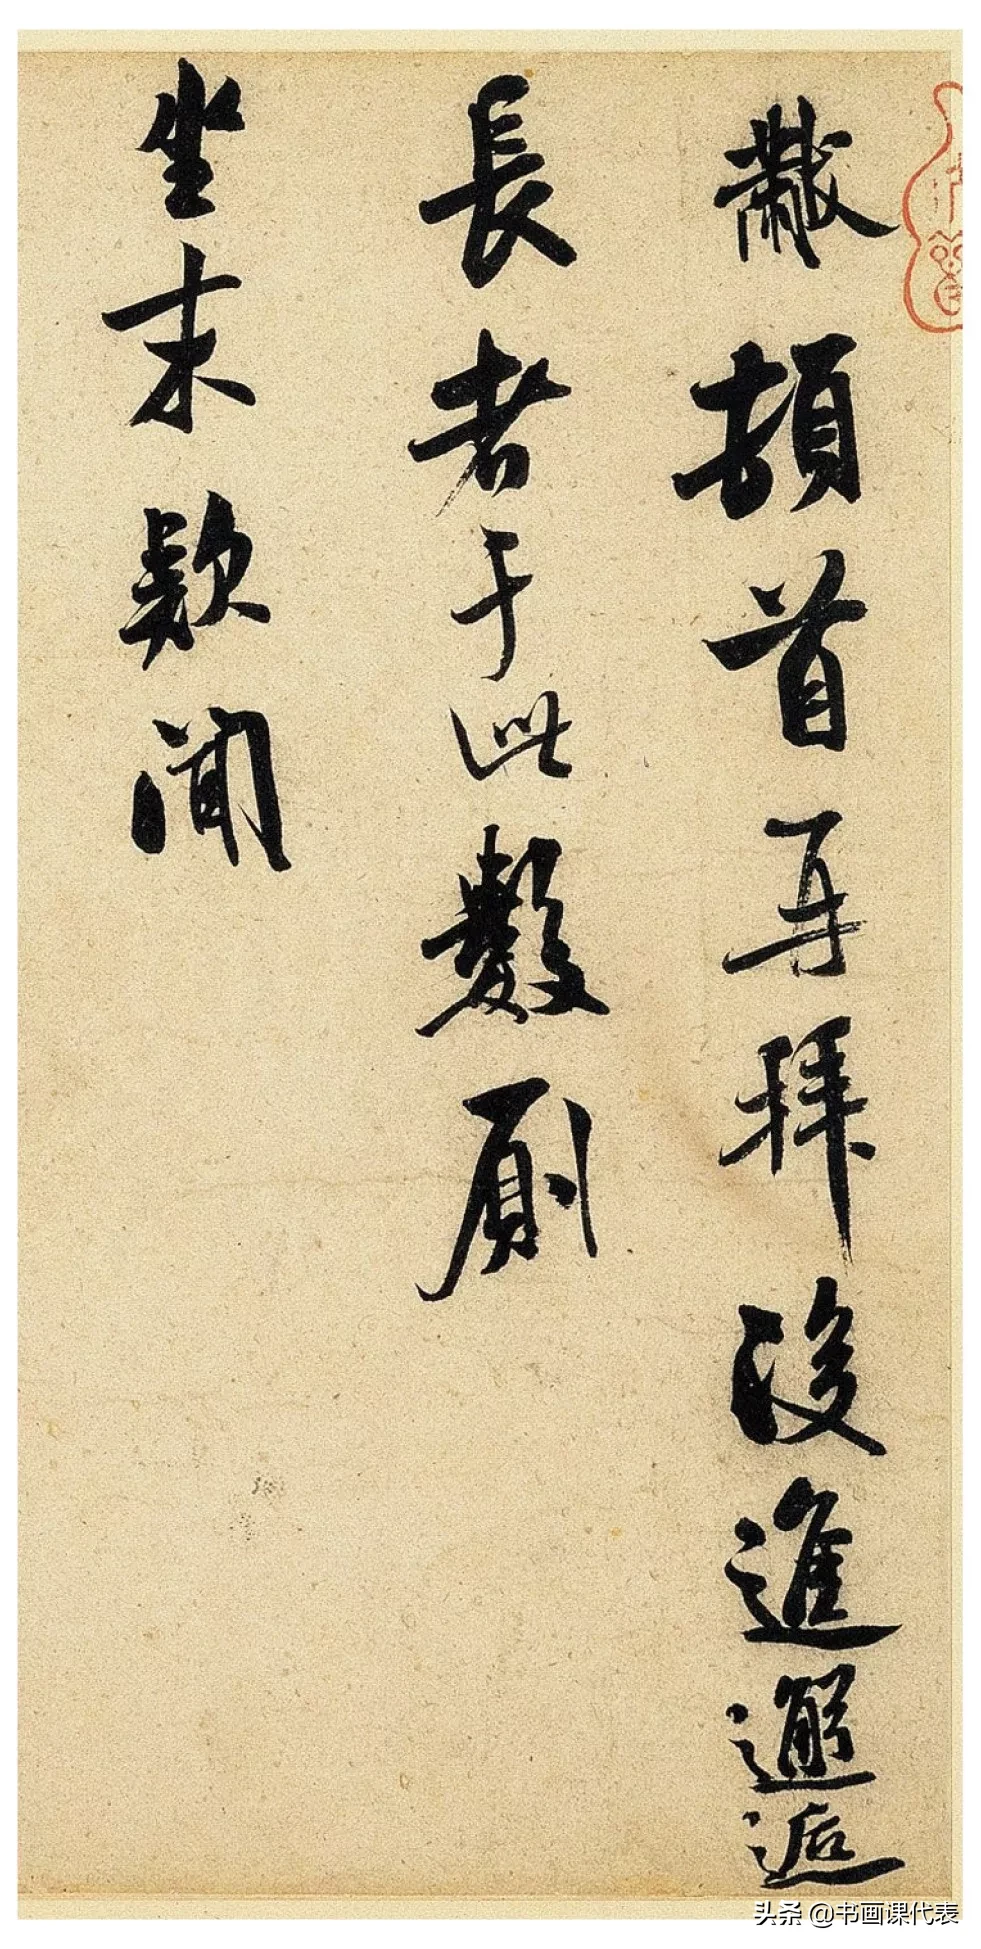 黻頓首再拜後進邂逅
長者于此數厠
坐末欵聞
头条 @书画课代表